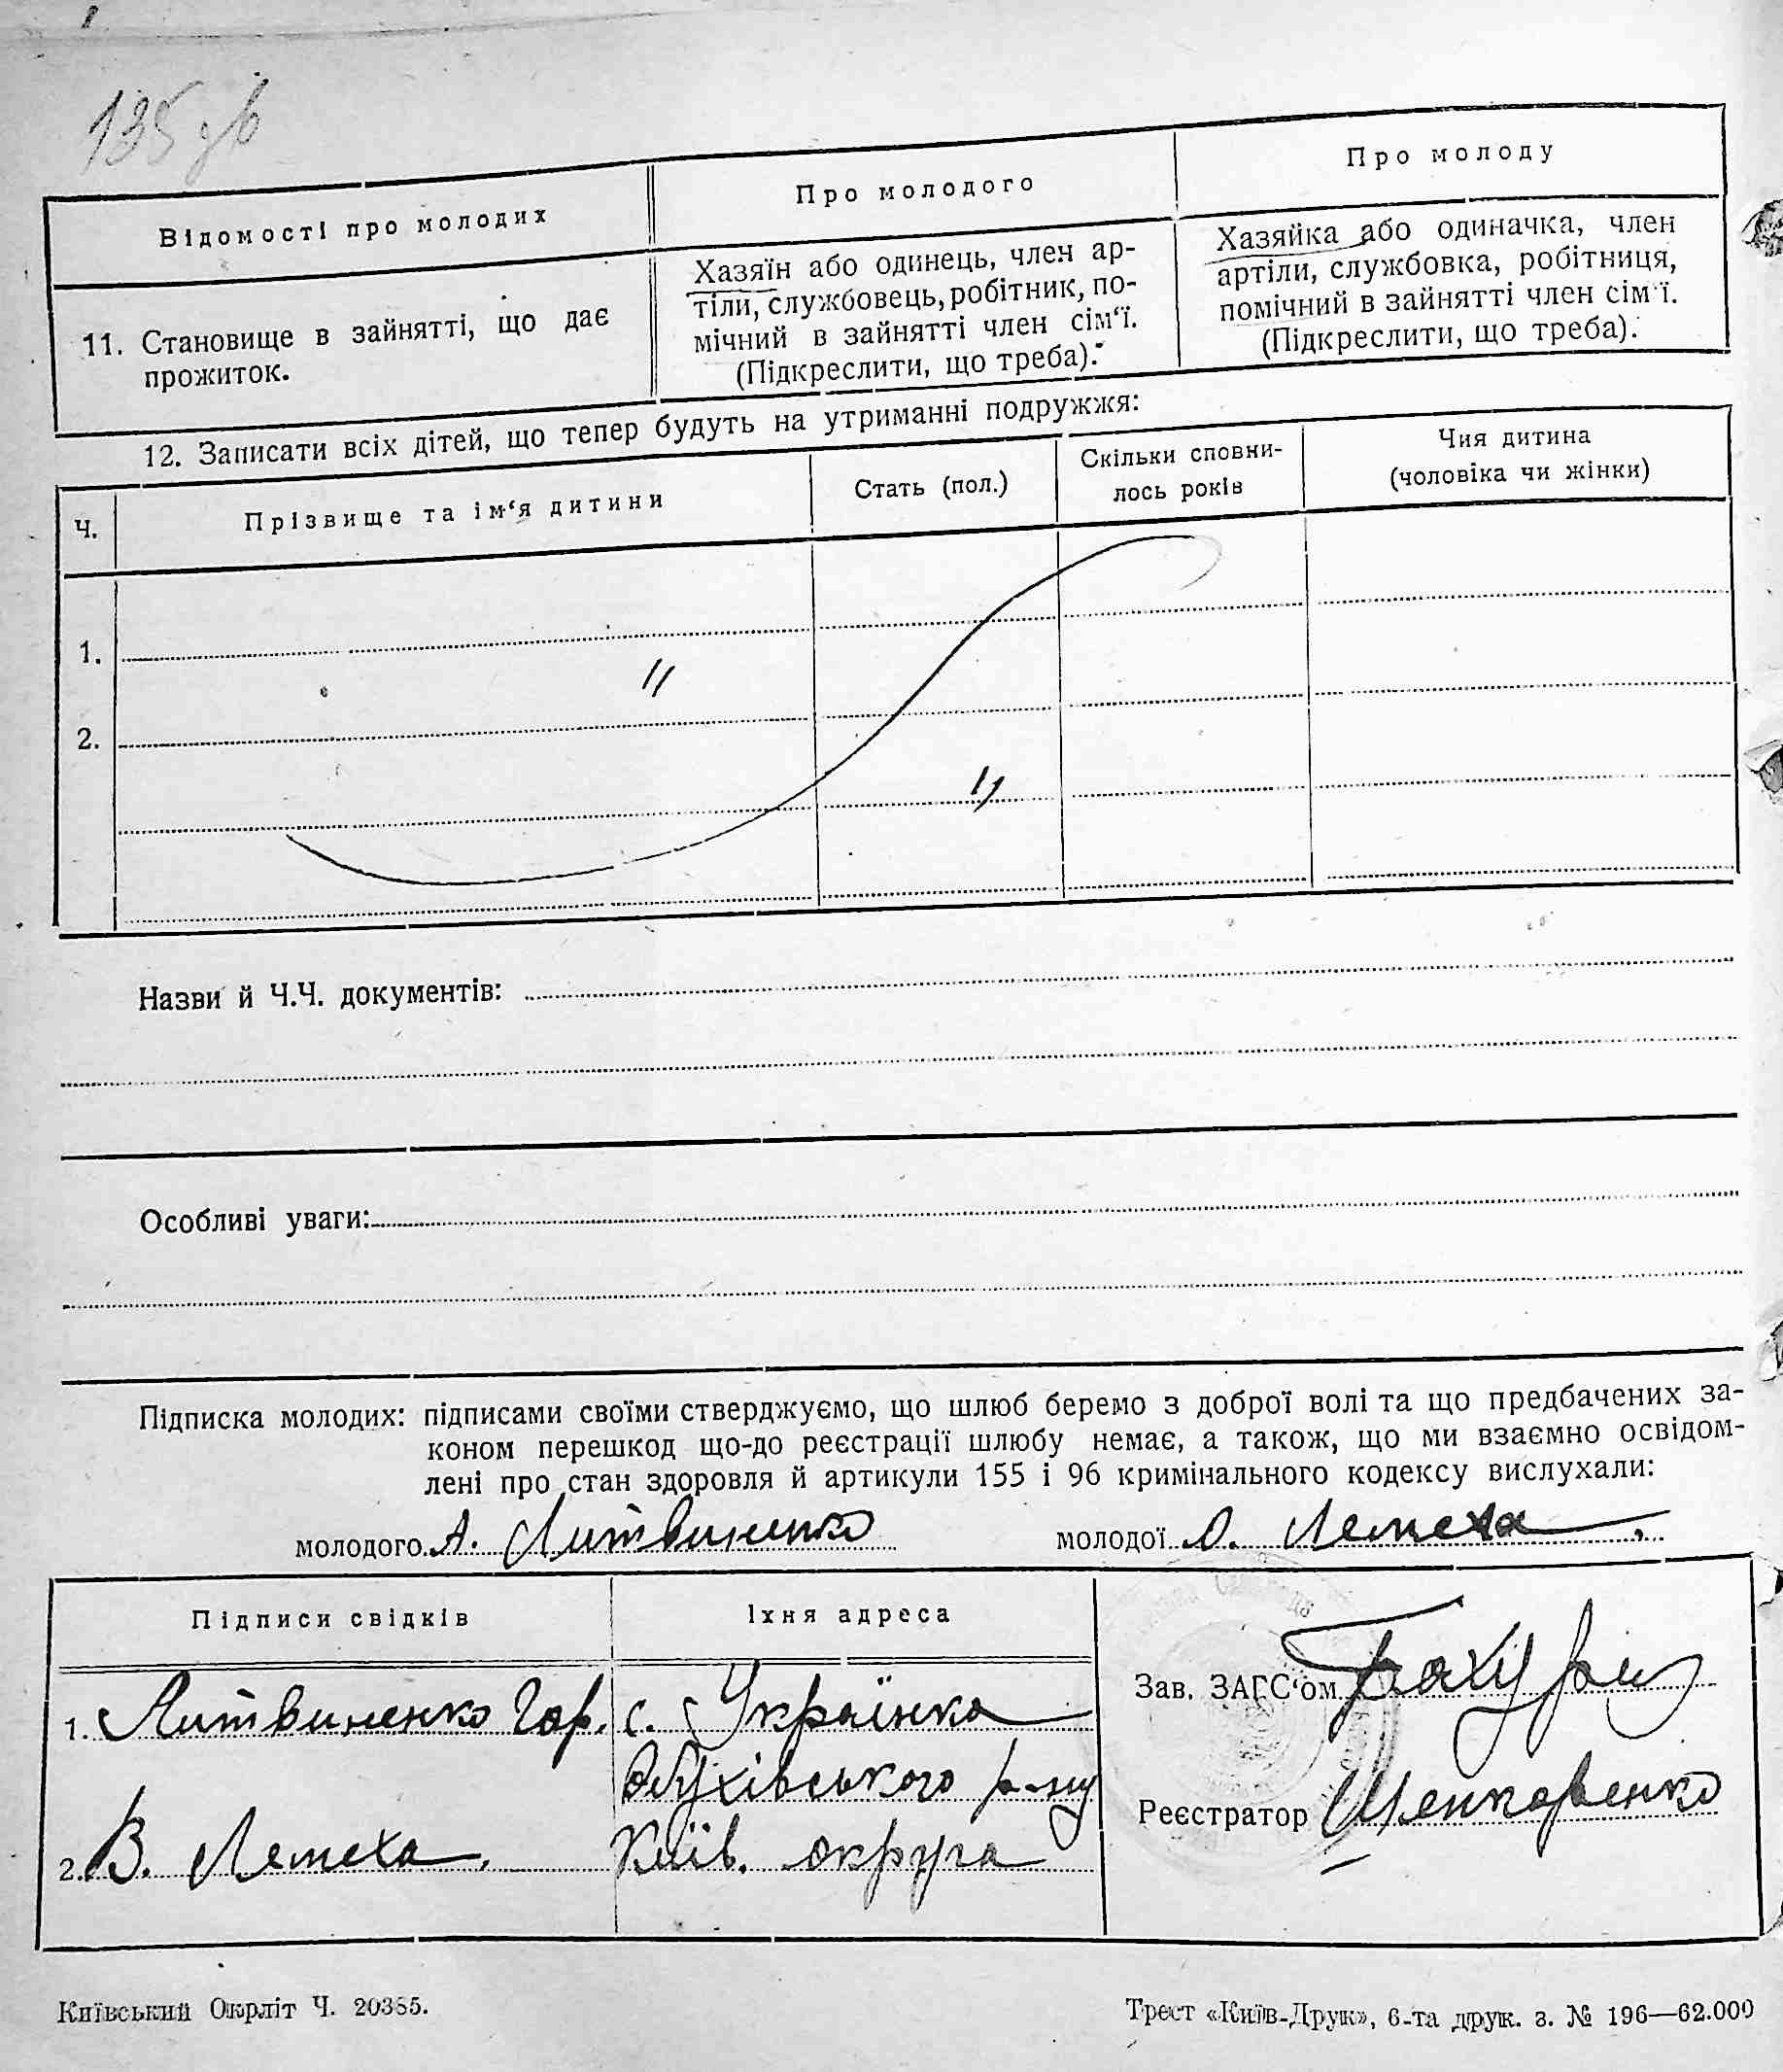 135 зв
Відомості про молодих
Про молодого
Про молоду
11. Становище в зайнятті, що дає
прожиток.
Хазяїн або одинець, член ар-
тіли, службовець, робітник, по-
мічний в зайнятті член сім‘ї.
(Підкреслити, що треба).
Хазяйка або одиначка, член
артіли, службовка, робітниця,
помічний в зайнятті член сім‘ї.
(Підкреслити, що треба).
12. Записати всіх дітей, що тепер будуть на утриманні подружжя:
Ч.
Прізвище та ім‘я дитини
Стать (пол.)
Скільки сповни-
лось років
Чия дитина
(чоловіка чи жінки)
1.
"
2.
"
Назви й Ч.Ч. документів:
Особливі уваги:
Підписка молодих: підписами своїми стверджуємо, що шлюб беремо з доброї волі та що предбачених за-
коном перешкод що-до реєстрації шлюбу немає, а також, що ми взаємно освідом-
лені про стан здоровля й артикули 155 і 96 кримінального кодексу вислухали:
молодого А. Литвиненко молодої О. Лемеха
Підписи свідків
Їхня адреса
1. Литвиненко Гор.
с. Українка
Обухівського р-ну
2. В. Лемеха.
Київ. округа
Зав. ЗАГС‘ом
Реєстратор
Київський Окрліт Ч. 20385.
Трест «Київ-Друк», 6-та друк. з. № 196—62.000